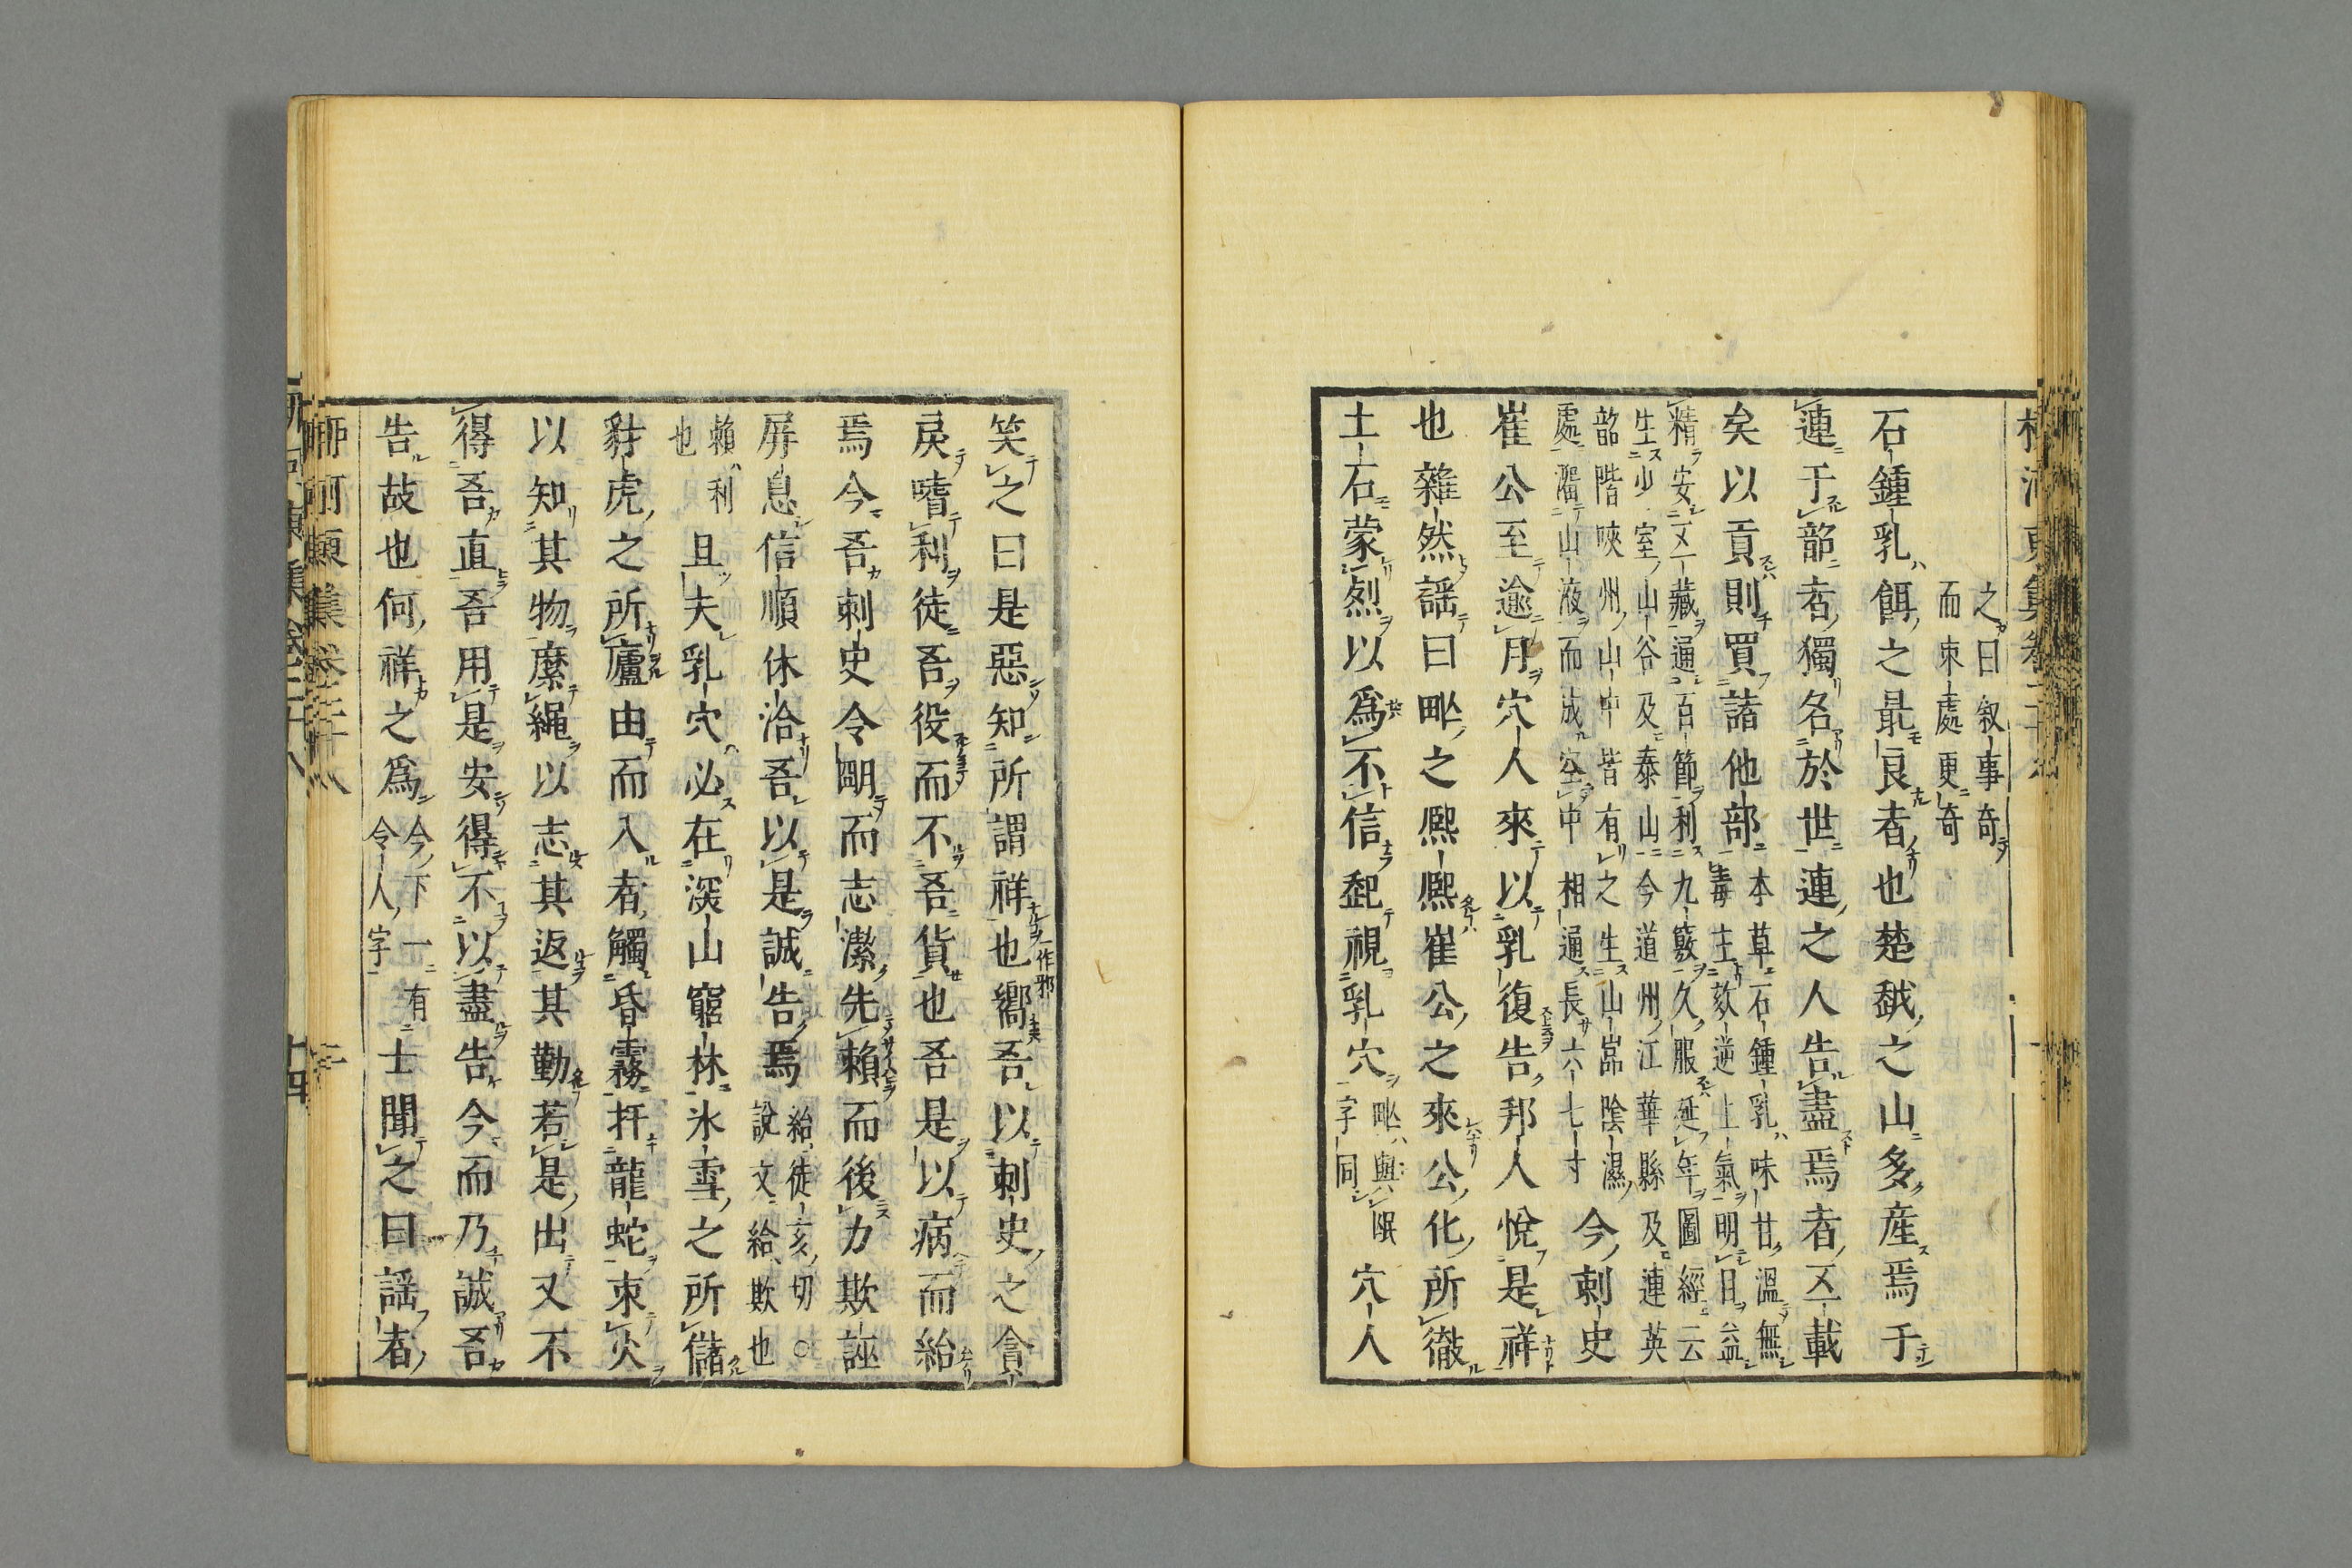 之曰叙事奇
而束處更奇
石鍾乳餌之最良者也楚越之山多產焉于
連于韶者獨名於世連之人告盡焉者五載
矣以貢則買諸他部
本草石鍾乳味甘溫無
毒主欬逆上氣明目益
精安五藏通百節利九竅久服延年圖經云
生少室山谷及泰山今道州江華縣及連英
韶階峽州山中皆有之生山嵓陰濕
處溜山液而成空中相通長六七寸
今刺史
崔公至逾月穴人來以乳復告邦人悅是祥
也雜然謡曰甿之熈熈崔公之來公化所徹
土石蒙烈以為不信起視乳穴
甿與氓
字同
穴人
笑之曰是惡知所謂祥也
一作邪
嚮吾以刺史之貪
戾嗜利徒吾役而不吾貨也吾是以病而紿
焉今吾刺史令明而志潔先賴而後力欺誣
屏息信順休洽吾以是誠告焉
紿徒亥切○
說文紿欺也
賴利
也
且夫乳穴必在深山窮林氷雪之所儲
豺虎之所廬由而入者觸昏霧扞龍蛇束火
以知其物縻繩以志其返其勤若是出又不
得吾直吾用是安得不以盡告今而乃誠吾
告故也何祥之為
今下一有
令人字
士聞之曰謡者